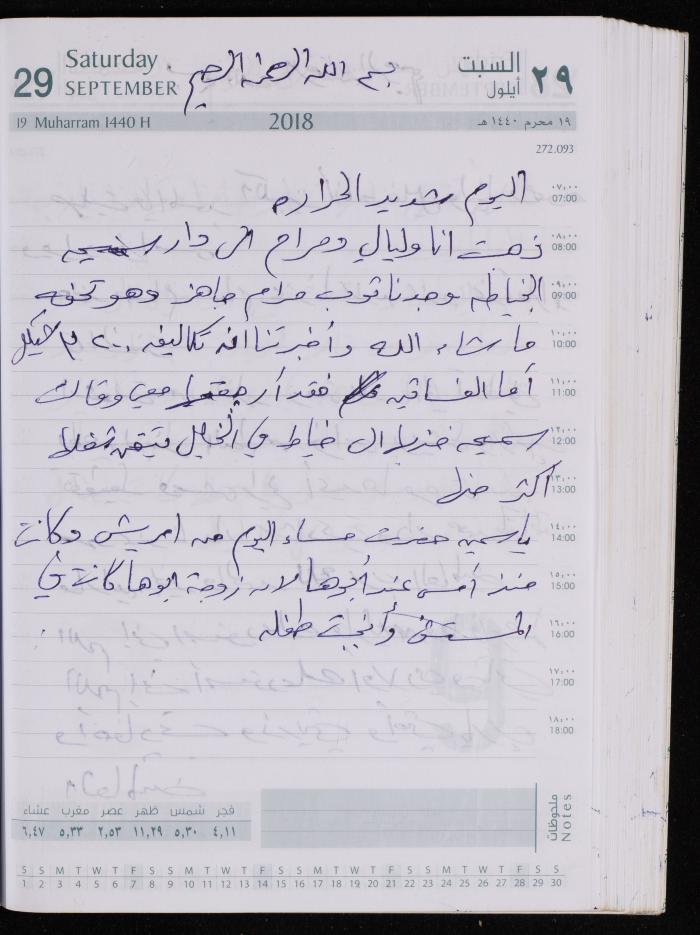 29 Saturday SEPTEMBER
بسم الله الرحمن الرحيم
السبت أيلول ٢٩
19 Muharram 1440 H
2018
١٩ محرم ١٤٤٠ هـ
272.093
اليوم شديد الحراره
٠٧,٠٠ 07:00
ذهبت انا وليالي ومرام الى دار سميحه
٠٨,٠٠ 08:00
الخياطه ووجدنا ثوب مرام جاهز وهو تحفه
٠٩,٠٠ 09:00
ما شاء الله وأخبرتنا انه تكاليفه ٢٠٠٠ شيكل
١٠,٠٠ 10:00
أما الفساتين فقد أرجعتها معي وقالت
١١,٠٠ 11:00
سميحه خذيها الى خياط في الخليل يتقن شغلا
١٢,٠٠ 12:00
اكثر منها
١٣,٠٠ 13:00
ياسمين حضرت مساء اليوم من امريش وكانت
١٤,٠٠ 14:00
منذ أمس عند أبوها لان زوجة ابوها كانت في
١٥,٠٠ 15:00
المستشفى وأنجبت طفله
١٦,٠٠ 16:00
١٧,٠٠ 17:00
١٨,٠٠ 18:00
فجر شمس ظهر عصر مغرب عشاء
٤,١١ ٥,٣٠ ١١,٢٩ ٢,٥٣ ٥,٣٣ ٦,٤٧
ملحوظات
Notes
S S M T W T F S S M T W T F S S M T W T F S S M T W T F S S
1 2 3 4 5 6 7 8 9 10 11 12 13 14 15 16 17 18 19 20 21 22 23 24 25 26 27 28 29 30